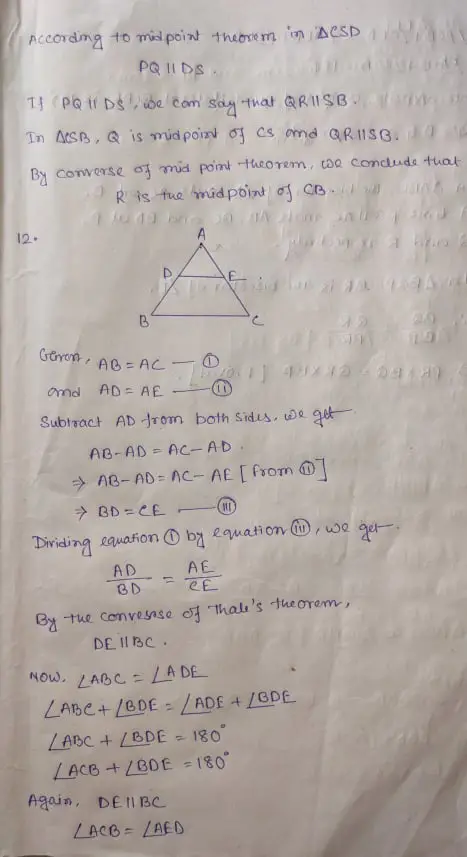 According to midpoint theorem in, ΔCSD
PQ || DS.
If PQ || DS, we can say that QR || SB.
In ΔCSB, Q is midpoint of CS and QR || SB.
By converse of mid point theorem, we conclude that
R is the midpoint of CB.
12.
A
D E
B C
Given, AB = AC — (I)
and AD = AE — (II)
Subtract AD from both sides, we get
AB - AD = AC - AD.
⇒ AB - AD = AC - AE [from (II)]
⇒ BD = CE — (III)
Dividing equation (I) by equation (III), we get.
AD/BD = AE/CE
By the converse of Thale's theorem,
DE || BC.
Now, ∠ABC = ∠ADE
∠ABC + ∠BDE = ∠ADE + ∠BDE
∠ABC + ∠BDE = 180°
∠ACB + ∠BDE = 180°
Again, DE || BC
∠ACB = ∠AED